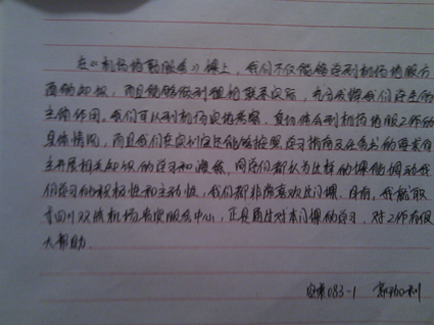 在《机场地勤服务》课上，我们不仅能够学到机场地服方
面的知识，而且能够做到理论联系实际，充分发挥我们学生的
主体作用。我们可以到机场实地考察，真切体会到机场地服工作的
具体情况，而且我们在实训室还能够按照学习指南及任务书的要求自
主开展相关知识的学习和演练，同学们都认为这样的课能调动我
们学习的积极性和主动性，我们都非常喜欢这门课。目前，我被取
于四川双流机场 服务中心，正是通过对本门课的学习，对工作有很
大帮助。
空乘083-1